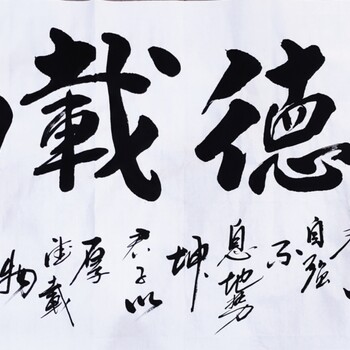 德載
自強不息地勢坤君子以厚德載物